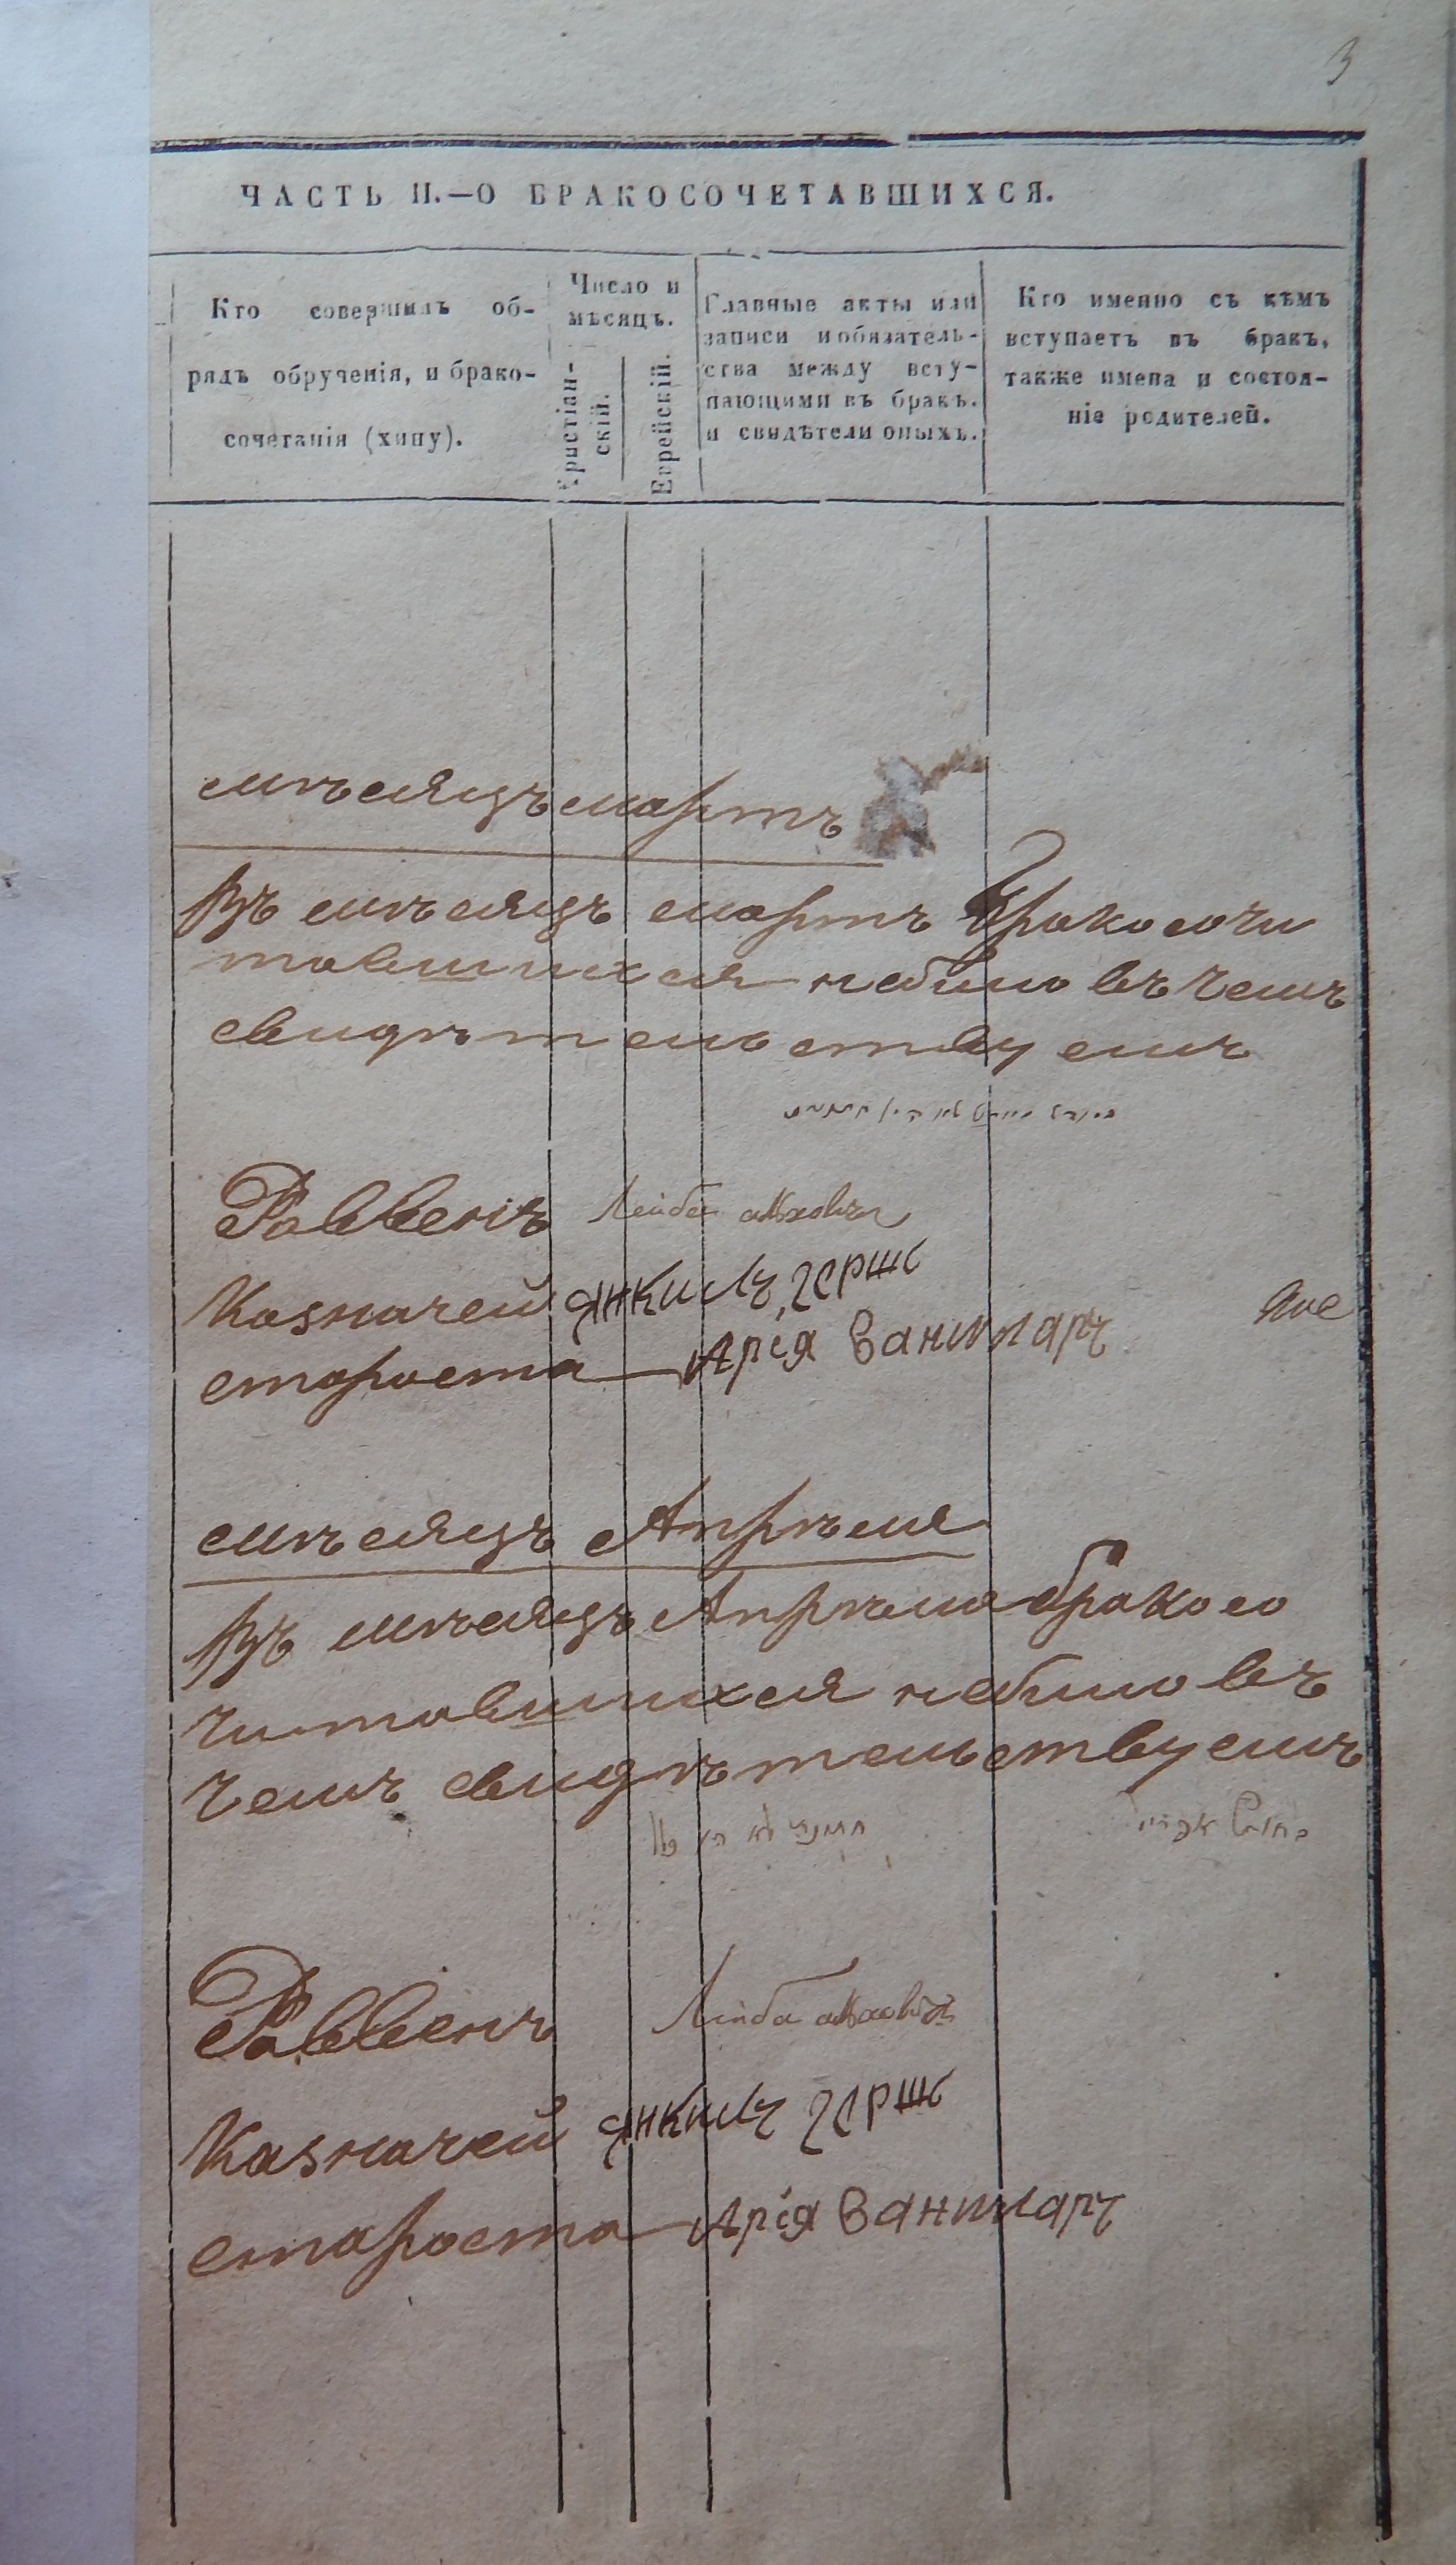 3
ЧАСТЬ II.—О БРАКОСОЧЕТАВШИХСЯ.
Кто совершилъ об-
рядъ обрученія, и брако-
сочетанія (хипу).
Число и
мѣсяцъ.
Христіан-
скій.
Еврейскій.
Главные акты или
записи и обязатель-
ства между всту-
пающими въ бракъ.
и свидѣтели оныхъ.
Кто именно съ кѣмъ
вступаетъ въ бракъ,
также имена и состоя-
ніе родителей.
мѣсяцъ мартъ
Въ мѣсяцъ мартъ бракосочи
тавшихся небило въ чемъ
свидѣтельствуемъ
Раввенъ Лейба
Казначей Янкилъ Гершъ
староста Арія Ваншларъ
мѣсяцъ Апрѣля
Въ мѣсяцъ Апрѣля бракосо
читавшихся небило въ
чемъ свидѣтельствуемъ
חתונה לא היו
בחודש אפריל
Раввенъ Лейба
Казначей Янкилъ Гершъ
староста Арія Ваншларъ